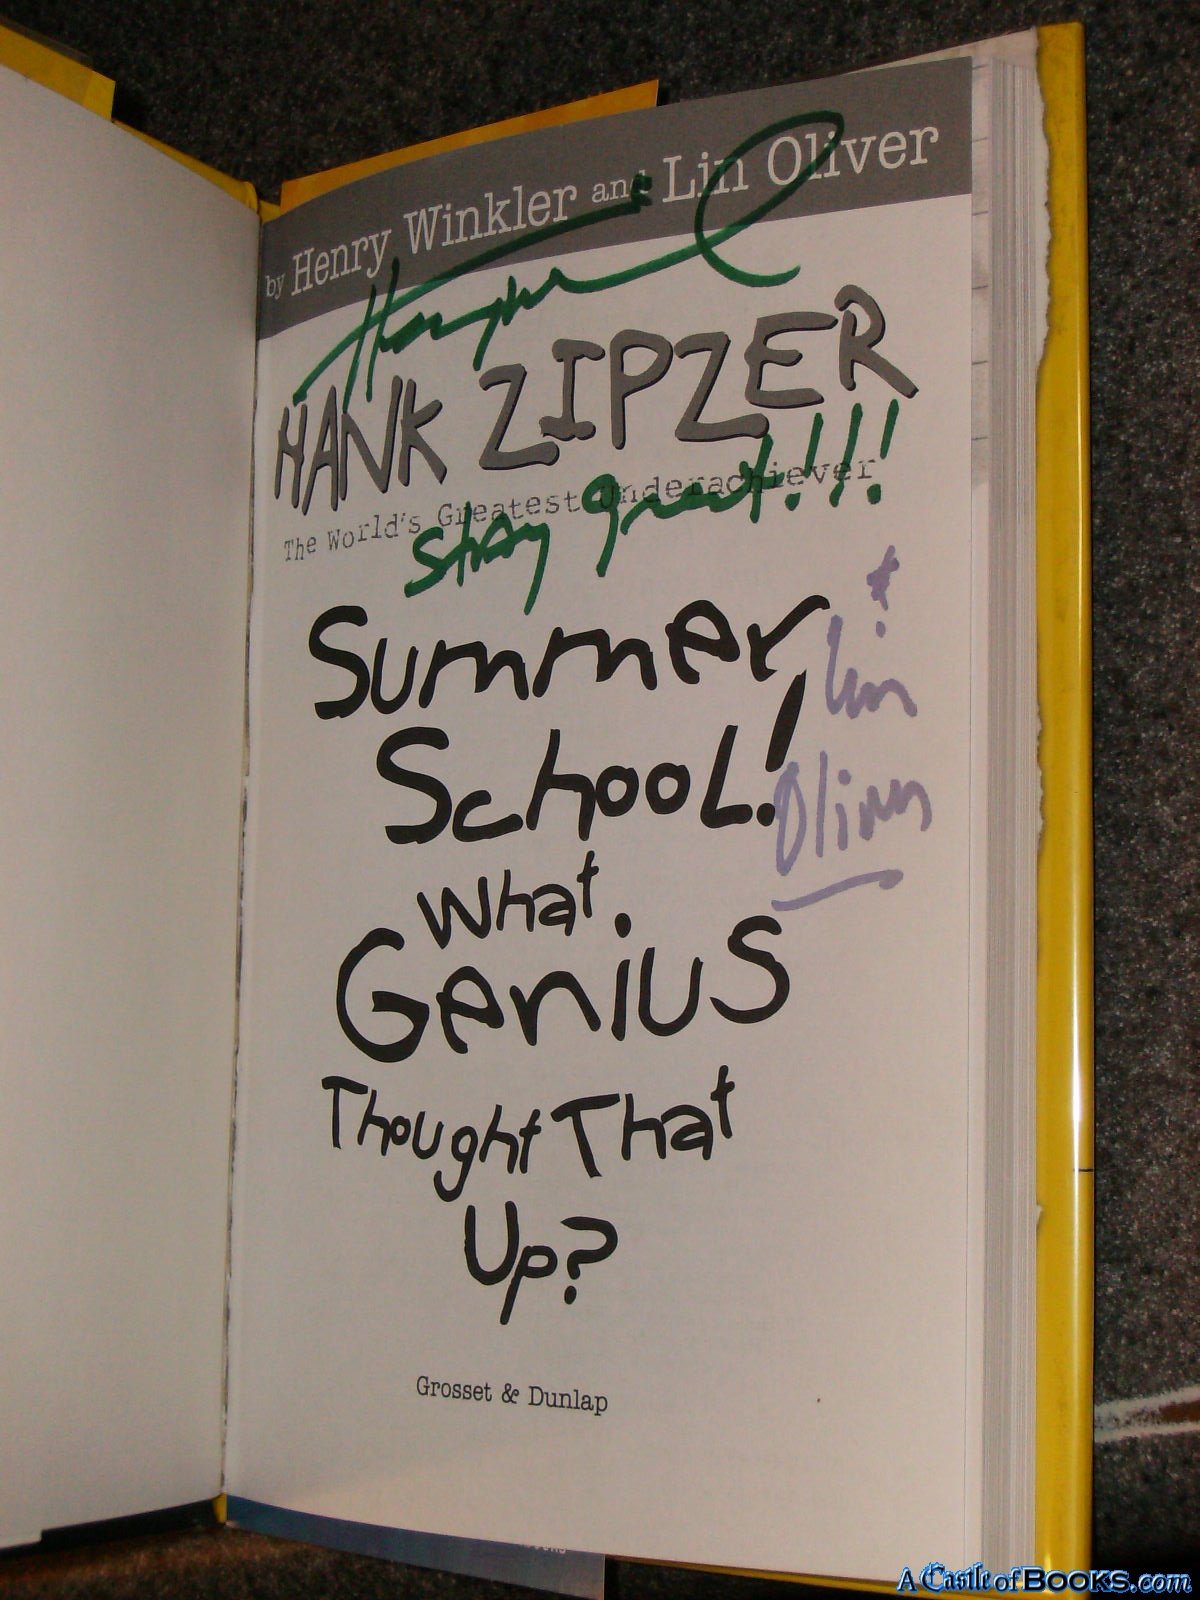 by Henry Winkler and Lin Oliver
HANK ZIPZER
The World's Greatest Underachiever
Stay great!!!
Summer
School!
&
Lin
Oliver
What
Genius
Thought That
Up?
Grosset & Dunlap
A Castle of BOOKS.com